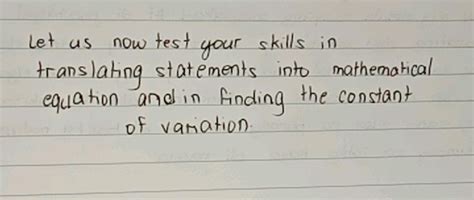 Let us now test your skills in
translating statements into mathematical
equation and in finding the constant
of variation.